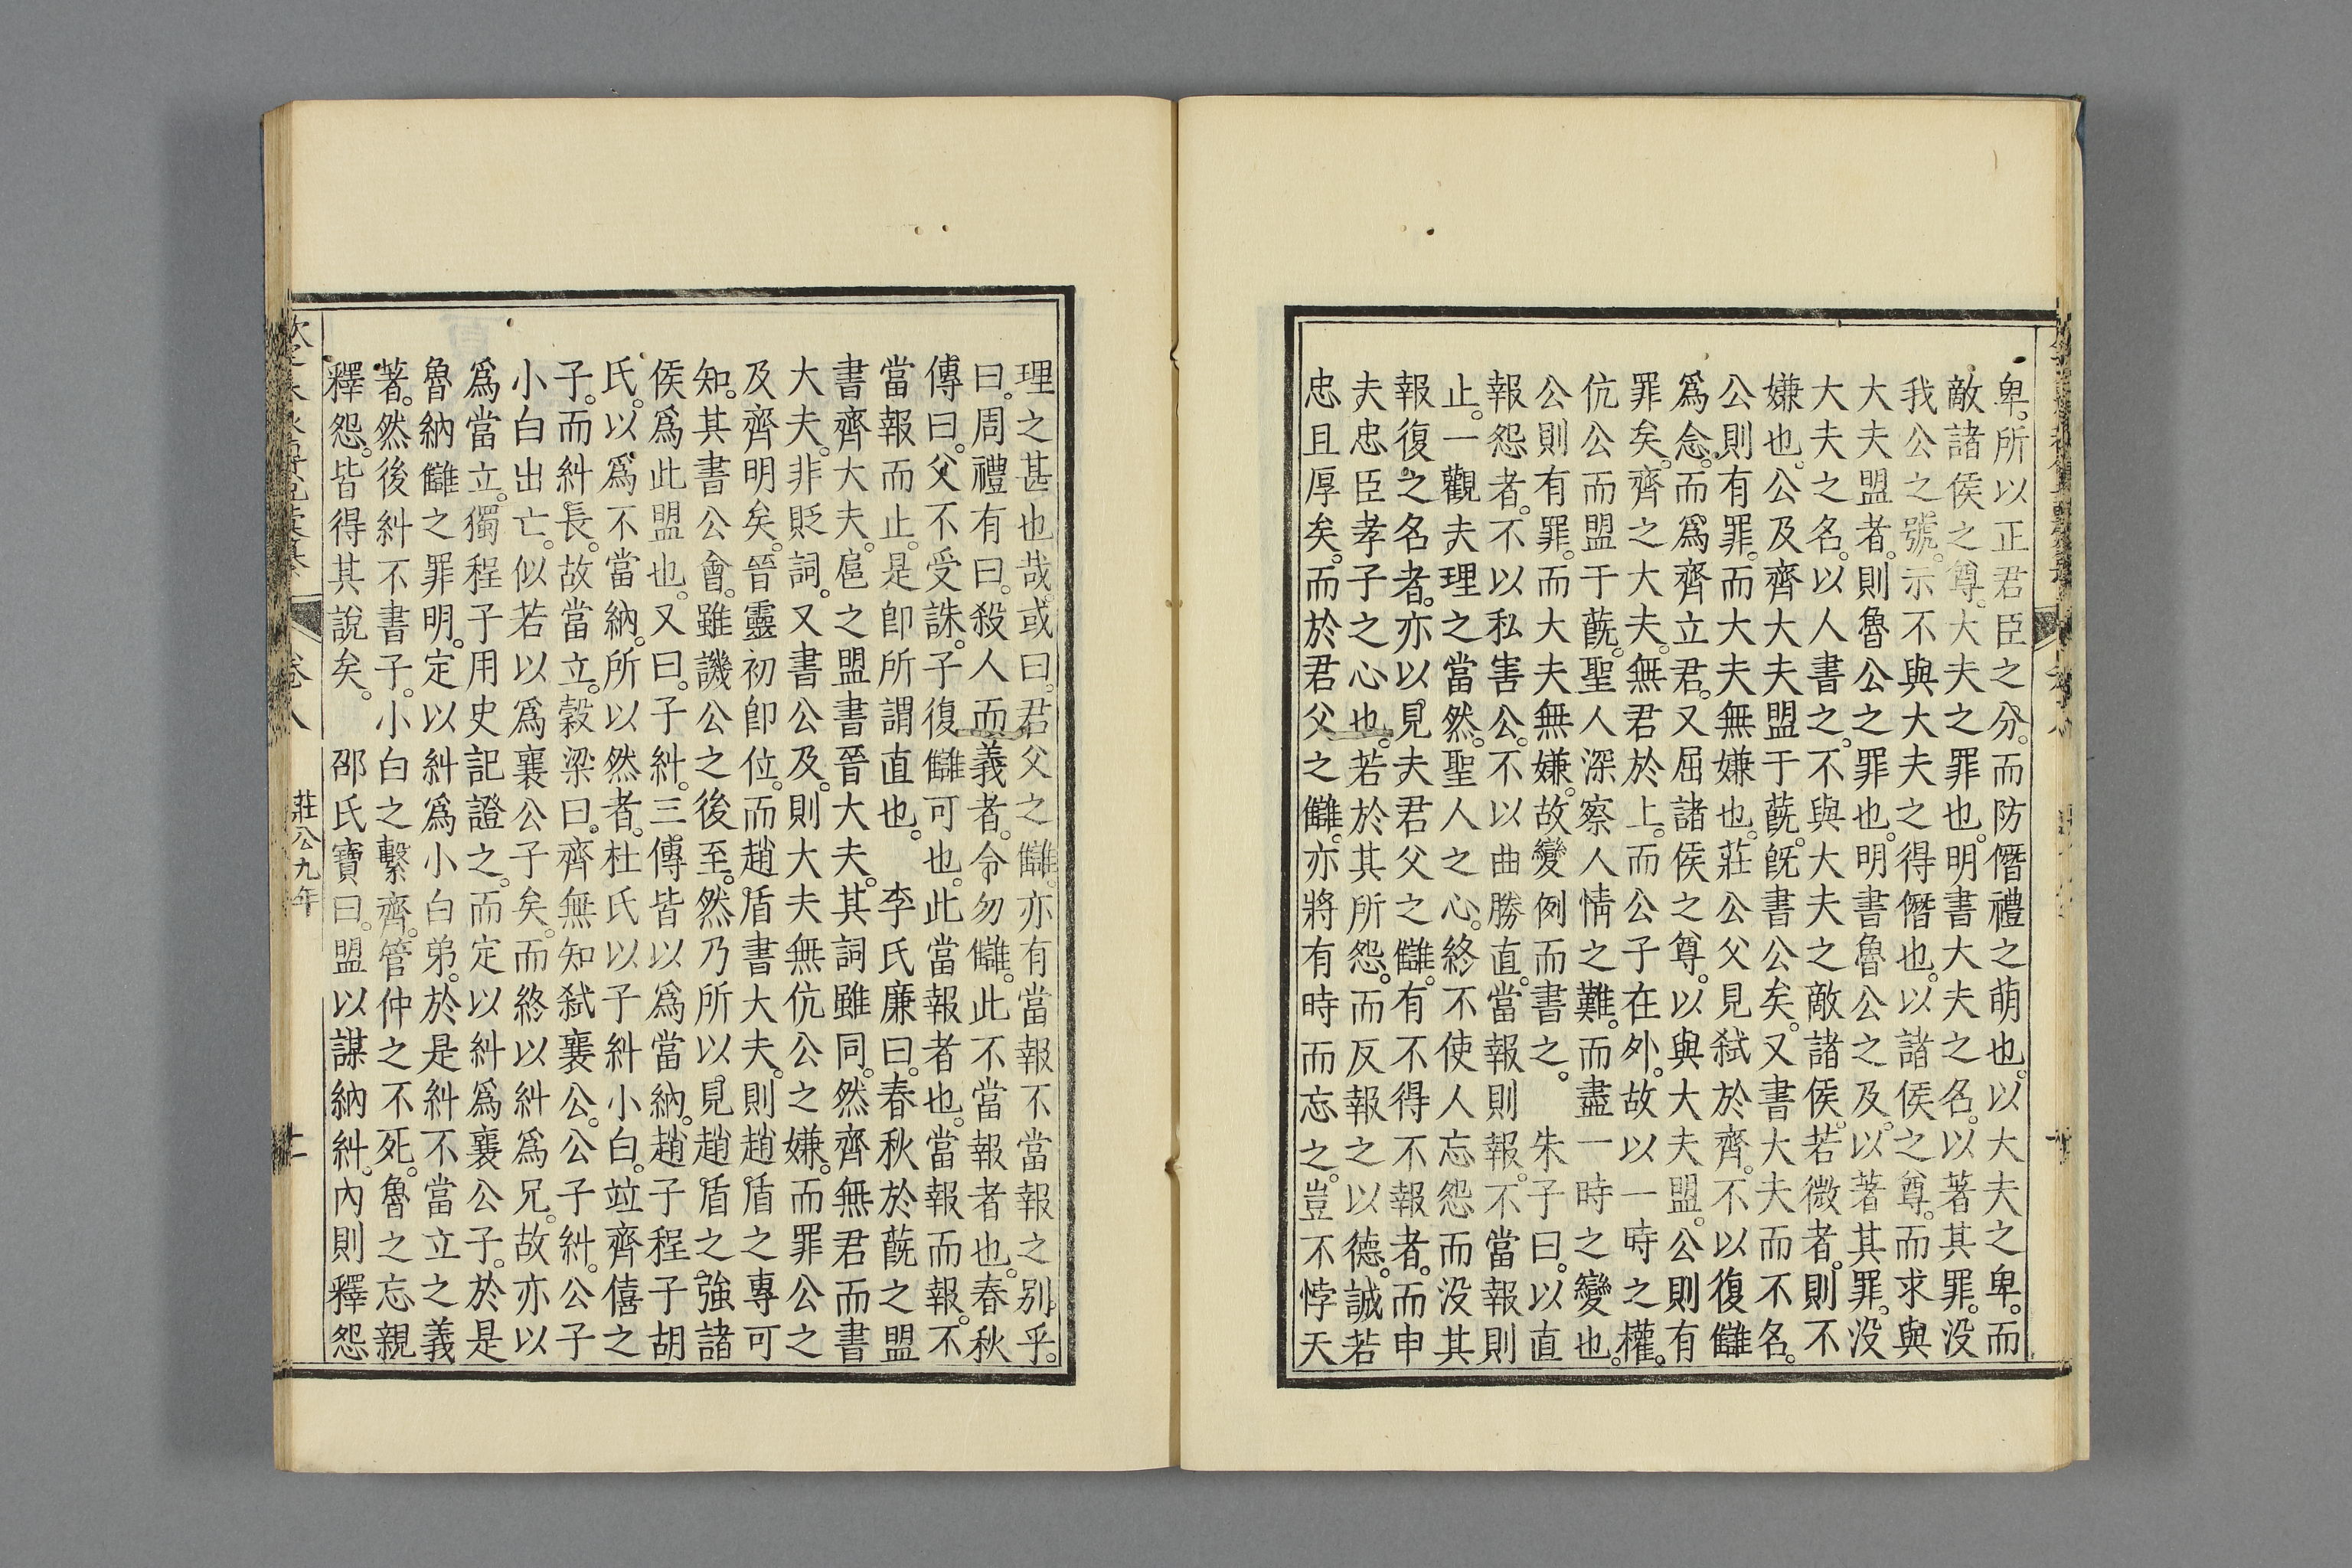 卑。所以正君臣之分。而防僭禮之萌也。以大夫之卑。而
敵諸侯之尊。大夫之罪也。明書大夫之名。以著其罪。没
我公之號。示不與大夫之得僭也。以諸侯之尊。而求與
大夫盟者。則魯公之罪也。明書魯公之及。以著其罪。没
大夫之名。以人書之。不與大夫之敵諸侯。若微者。則不
嫌也。公及齊大夫盟于蔇。旣書公矣。又書大夫而不名。
公則有罪。而大夫無嫌也。莊公父見弑於齊。不以復讎
爲念。而爲齊立君。又屈諸侯之尊。以與大夫盟。公則有
罪矣。齊之大夫。無君於上。而公子在外。故以一時之權。
伉公而盟于蔇。聖人深察人情之難。而盡一時之變也。
公則有罪。而大夫無嫌。故變例而書之。 朱子曰。以直
報怨者。不以私害公。不以曲勝直。當報則報。不當報則
止。一觀夫理之當然。聖人之心。終不使人忘怨而没其
報復之名者。亦以見夫君父之讎。有不得不報者。而申
夫忠臣孝子之心也。若於其所怨。而反報之以德。誠若
忠且厚矣。而於君父之讎。亦將有時而忘之。豈不悖天
理之甚也哉。或曰。君父之讎。亦有當報不當報之别乎。
曰。周禮有曰。殺人而義者。令勿讎。此不當報者也。春秋
傳曰。父不受誅。子復讎可也。此當報者也。當報而報。不
當報而止。是卽所謂直也。 李氏廉曰。春秋於蔇之盟
書齊大夫。扈之盟書晉大夫。其詞雖同。然齊無君而書
大夫。非貶詞。又書公及。則大夫無伉公之嫌。而罪公之
及齊明矣。晉靈初卽位。而趙盾書大夫。則趙盾之專可
知。其書公會。雖譏公之後至。然乃所以見趙盾之強諸
侯爲此盟也。又曰。子糾。三傳皆以爲當納。趙子程子胡
氏。以爲不當納。所以然者。杜氏以子糾小白。竝齊僖之
子。而糾長。故當立。穀梁曰。齊無知弑襄公。公子糾。公子
小白出亡。似若以爲襄公子矣。而終以糾爲兄。故亦以
爲當立。獨程子用史記證之。而定以糾爲襄公子。於是
魯納讎之罪明。定以糾爲小白弟。於是糾不當立之義
著。然後糾不書子。小白之繫齊。管仲之不死。魯之忘親
釋怨。皆得其說矣。 邵氏寶曰。盟以謀納糾。內則釋怨
卷八 莊公九年